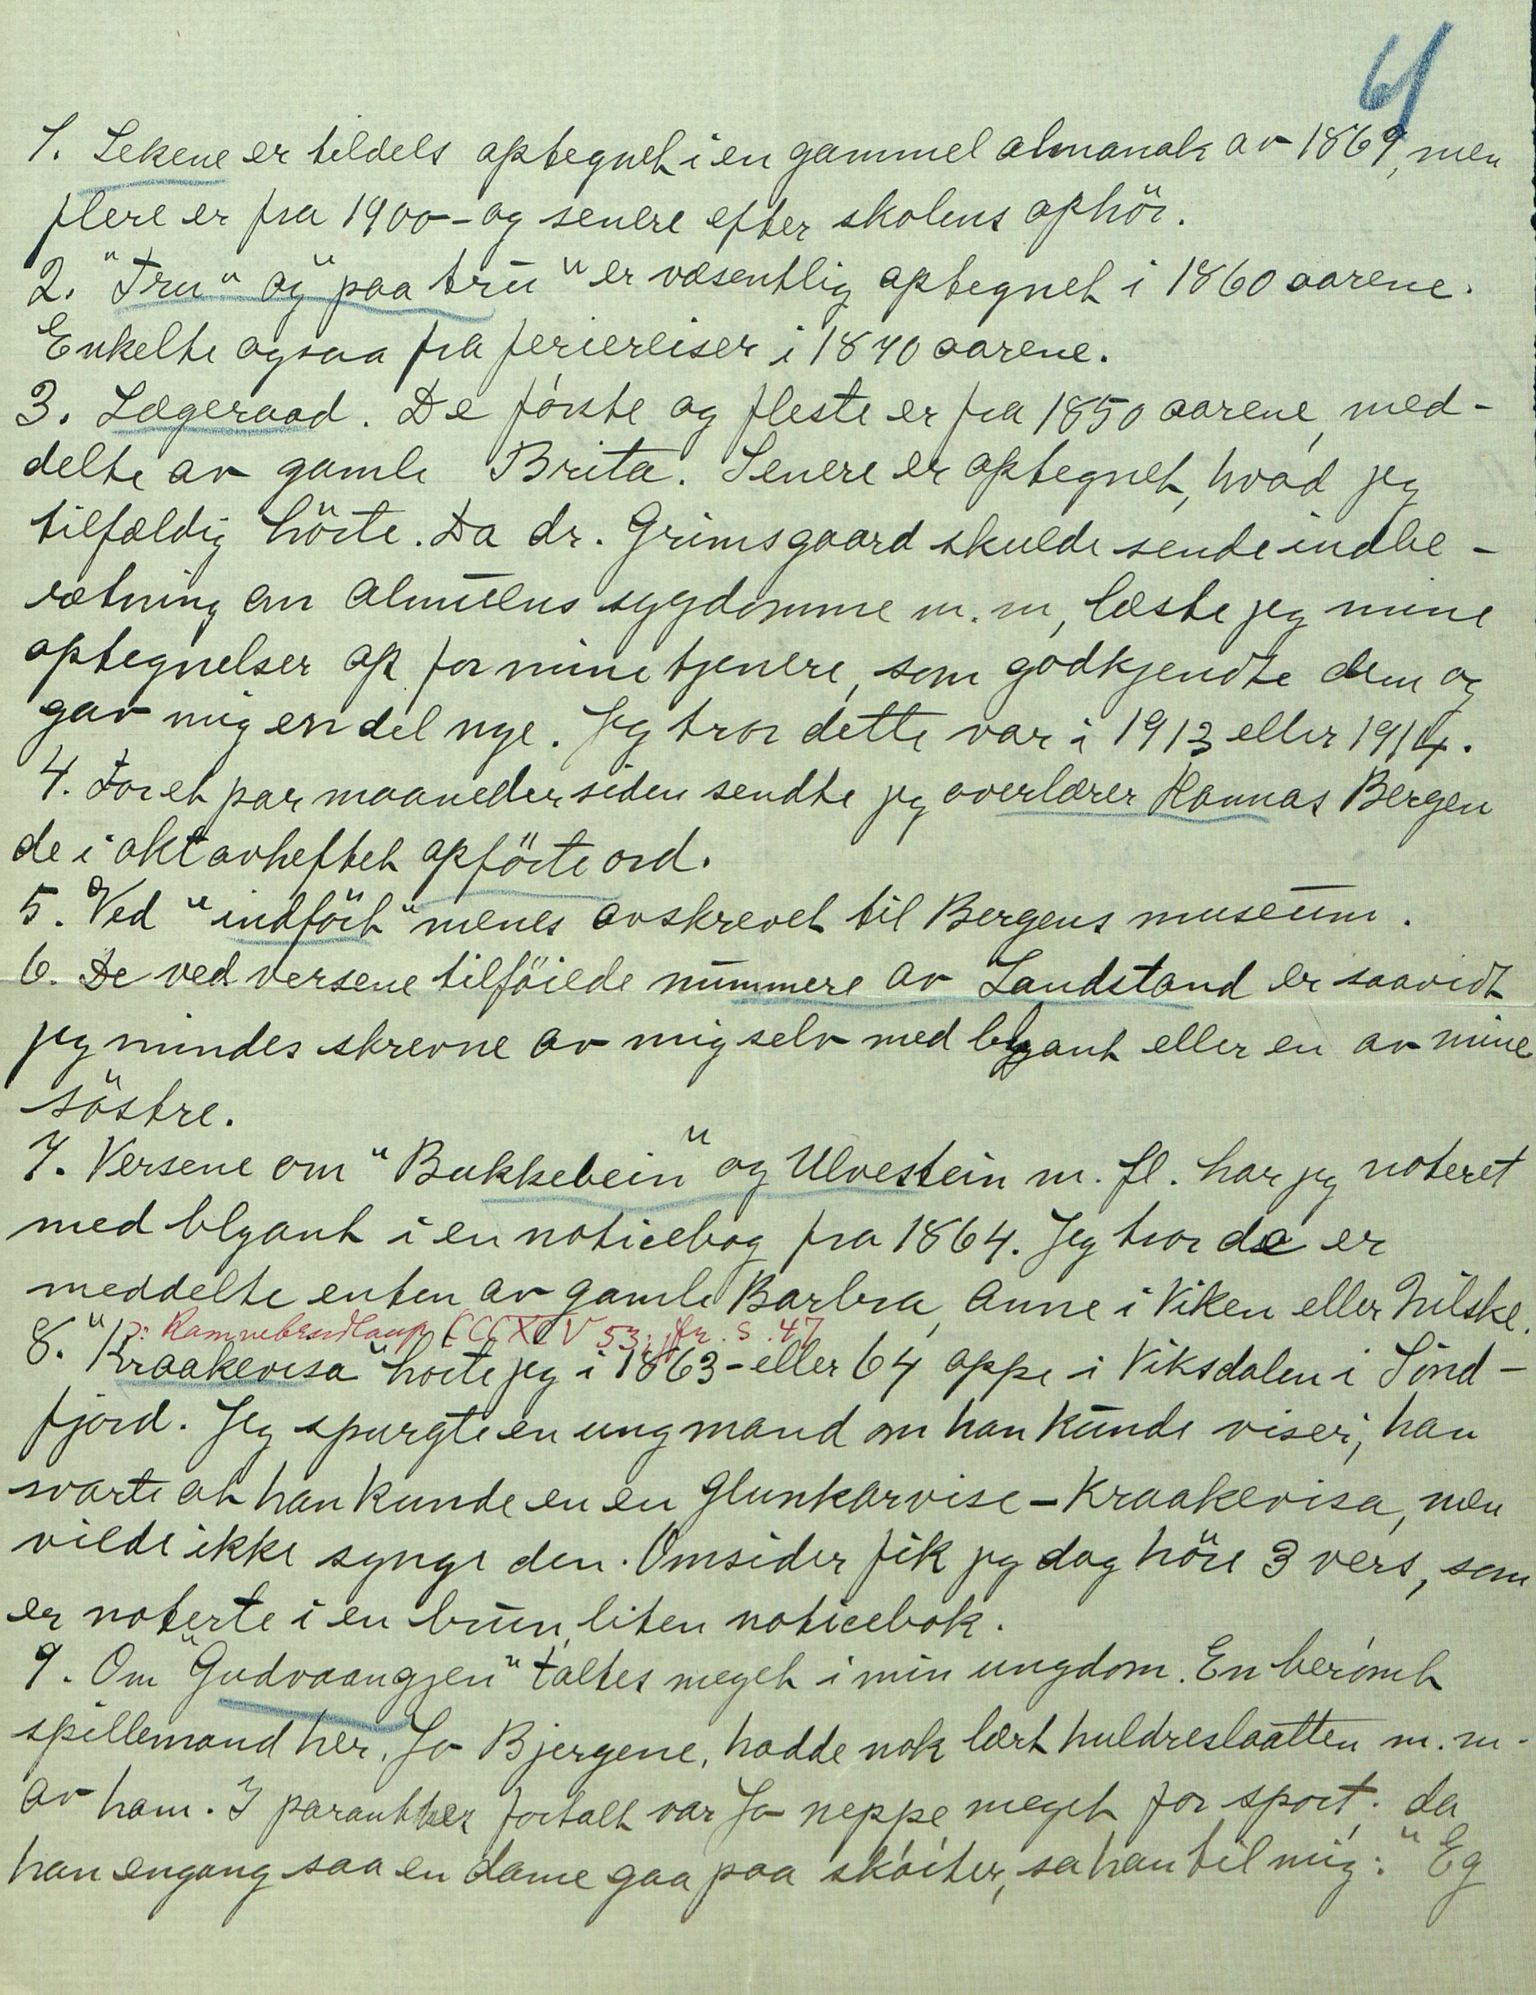 1. Lekene er tildels optegnet i en gammel almanak av 1869, men
flere er fra 1900 - og senere efter skolens ophör.
2. "Tru" og "paa tru" er væsentlig optegnet i 1860 aarene.
Enkelte ogsaa fra feriereiser i 1870 aarene.
3. Lægeraad. De förste og fleste er fra 1850 aarene, med-
delte av gamle Brita. Senere er optegnet, hvad jeg
tilfældig hörte. Da dr. Grimsgaard skulde sende indbe-
retning om almuens sygdomme m. m, læste jeg mine
optegnelser op for mine tjenere, som godkjendte dem og
gav mig en del nye. Jeg tror dette var i 1913 eller 1914.
4. For et par maaneder siden sendte jeg overlærer Hannas Bergen
de i oktavheftet opförte ord.
5. Ved "indfört" menes avskrevet til Bergens museum.
6. De ved versene tilföiede nummere av Landstand er saavidt
jeg mindes skrevne av mig selv med blyant eller en av mine
söstre.
7. Versene om "Bukkebein" og Ulvestein m. fl. har jeg noteret
med blyant i en noticebog fra 1864. Jeg tror de er
meddelte enten av gamle Barbra, Anne i Viken eller Nilske.
ɔ: Ramnebrudlaup CCCXCV 53; jfr. s. 47
8. "Kraakevisa" hörte jeg i 1863 - eller 64 oppe i Viksdalen i Sönd-
fjord. Jeg spurgte en ung mand om han kunde viser; han
svarte at han kunde en en Glunkarvise - Kraakevisa, men
vilde ikke synge den. Omsider fik jeg dog höre 3 vers, som
er noterte i en brun, liten noticebok.
9. Om "Gudvaangjen" taltes meget i min ungdom. En berömt
spillemand her, Jo Bjergene, hadde nok lært huldreslaatten m. m.
av ham. I parantther fortalt var Jo neppe meget for sport; da
han engang saa en dame gaa paa sköiter, sa han til mig: "Eg